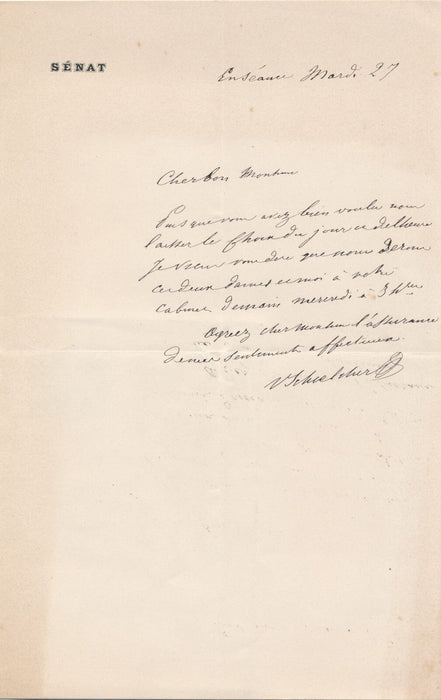 SÉNAT
En séance Mardi 27
Cher bon Monsieur
Puisque vous avez bien voulu nous
laisser le choix du jour et de l'heure
je viens vous dire que nous serons
ces deux dames et moi à votre
cabinet demain mercredi à 3 hres
Agréez cher monsieur l'assurance
de mes sentiments affectueux.
V Schoelcher